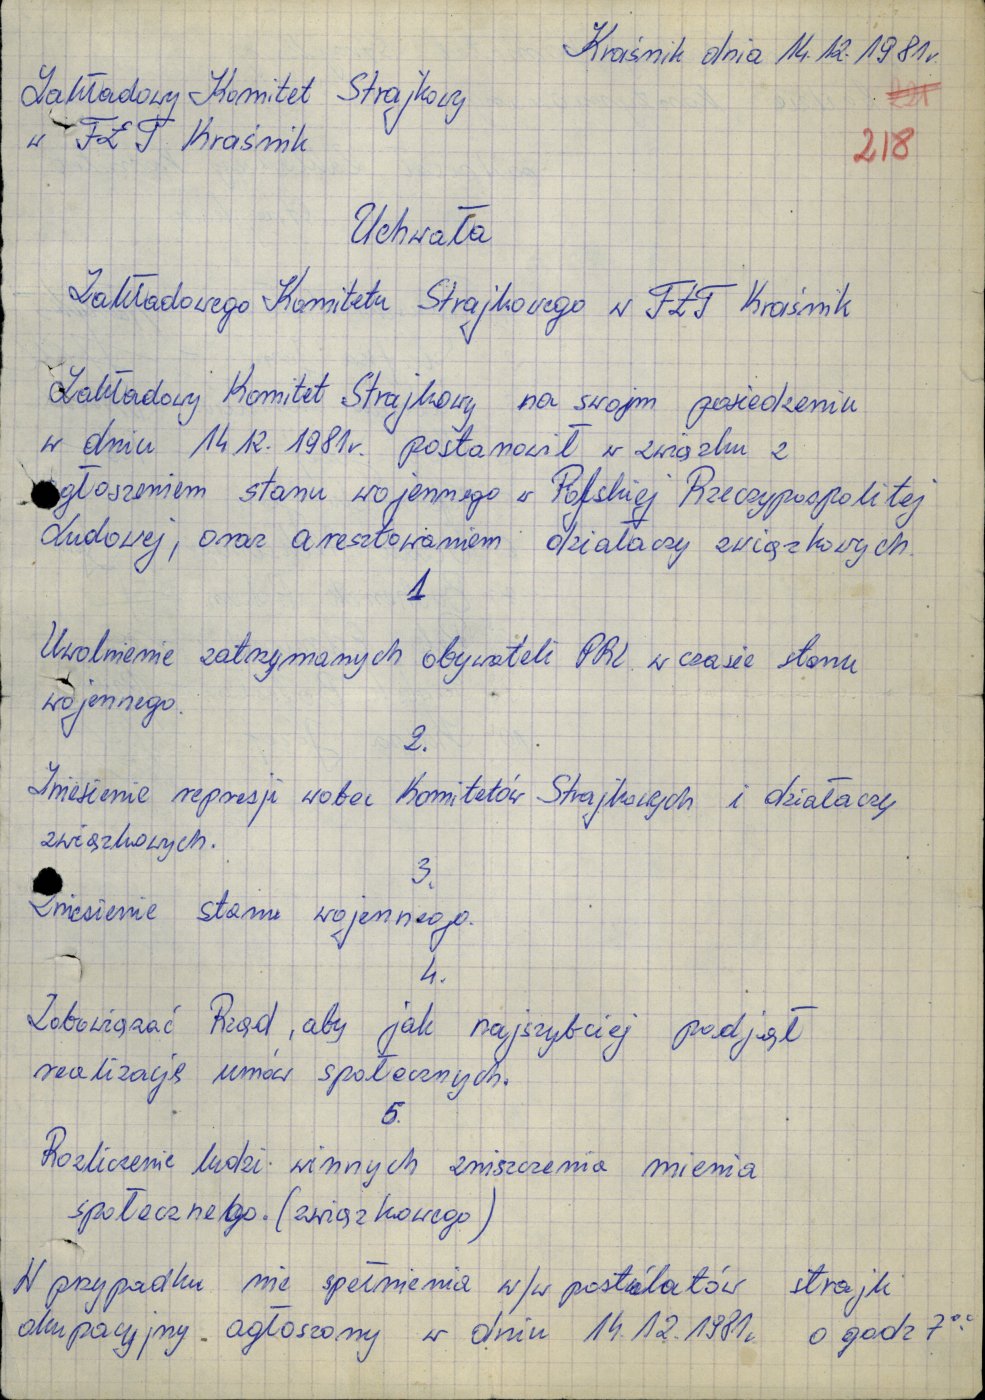 Kraśnik dnia 14.12.1981r.
Zakładowy Komitet Strajkowy
w FŁT Kraśnik
218
Uchwała
Zakładowego Komitetu Strajkowego w FŁT Kraśnik
Zakładowy Komitet Strajkowy na swojm posiedzeniu
w dniu 14 12. 1981r. postanowił w związku z
ogłoszeniem stanu wojennego w Polskiej Rzeczypospolitej
Ludowej, oraz aresztowaniem działaczy związkowych.
1
Uwolnienie zatrzymanych obywateli PRL w czasie stanu
wojennego.
2.
Zniesienie represji wobec Komitetów Strajkowych i działaczy
związkowych.
3.
Zniesienie stanu wojennego.
4.
Zobowiązać Rząd, aby jak najszybciej podjął
realizację umów społecznych.
5.
Rozliczenie ludzi winnych zniszczenia mienia
społecznego. (związkowego)
W przypadku nie spełnienia w/w postulatów strajk
okupacyjny ogłoszony w dniu 14.12.1981r. o godz 7⁰⁰